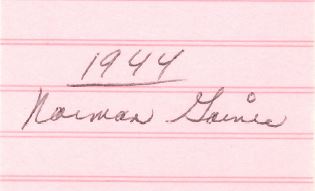 1944
Norman Gaines